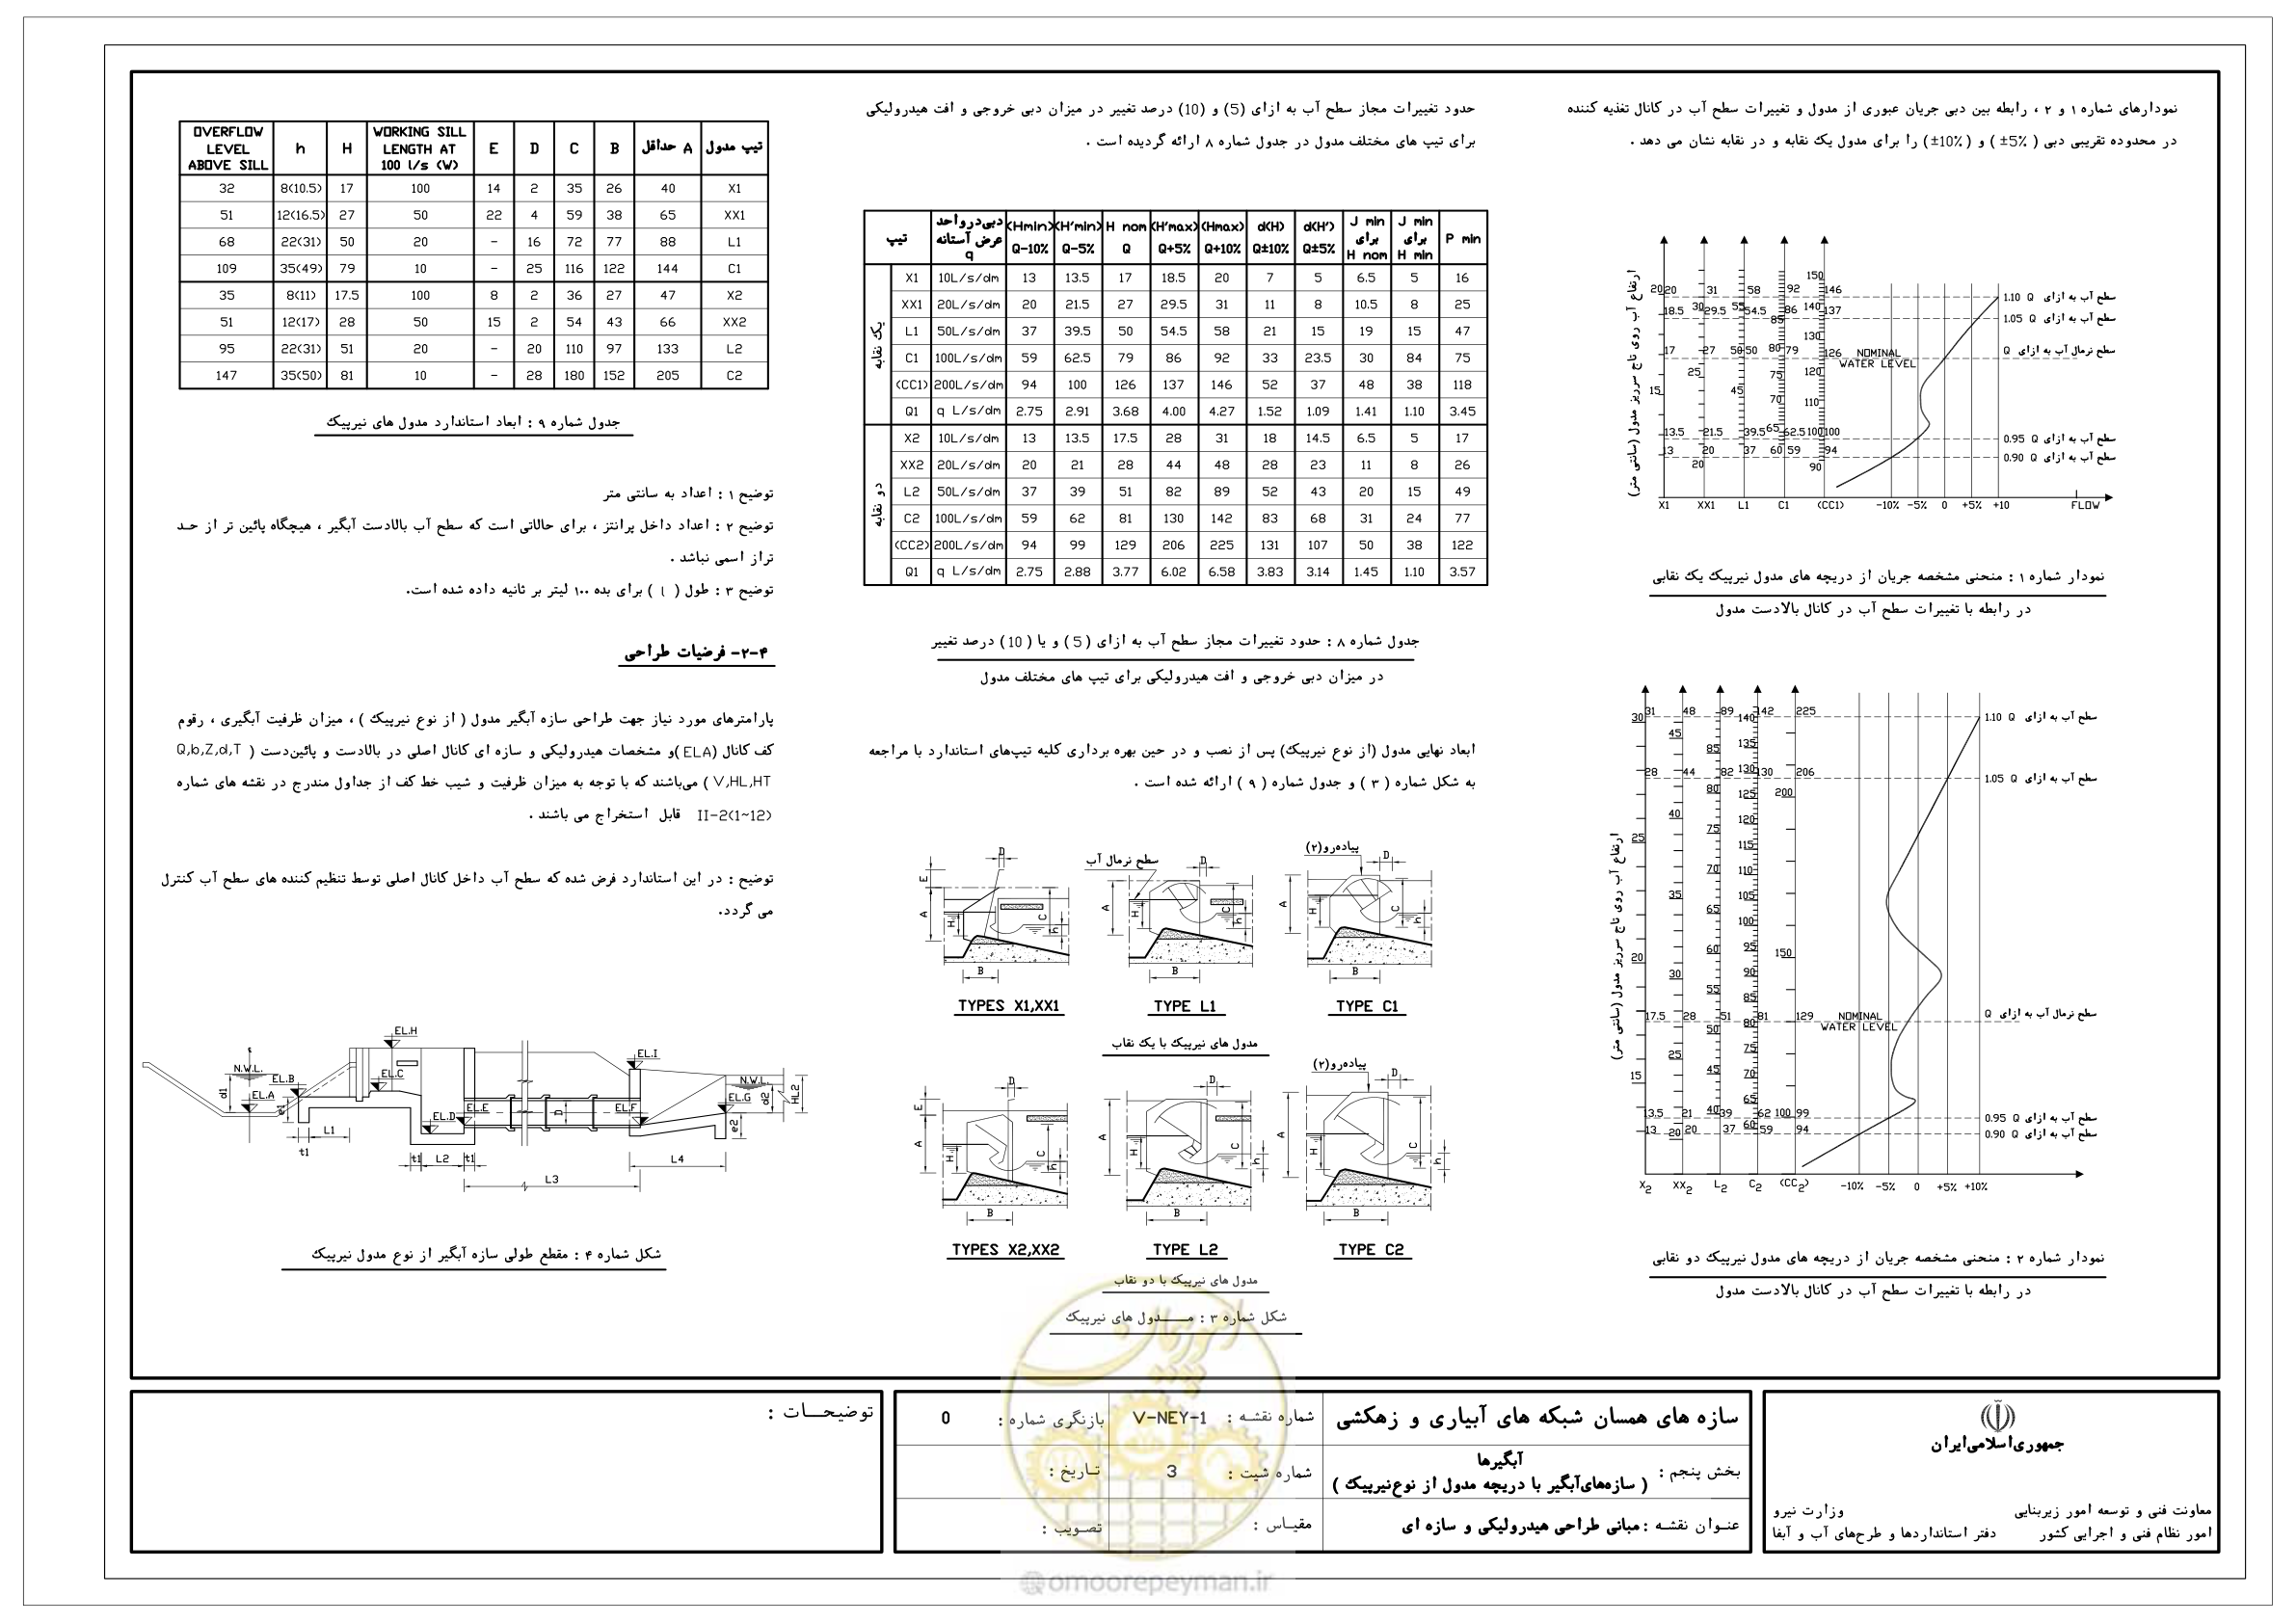 نمودارهای شماره ۱ و ۲ ، رابطه بین دبی جریان عبوری از مدول و تغییرات سطح آب در کانال تغذیه کننده
در محدوده تقریبی دبی ( ±5% ) و ( ±10%) را برای مدول یک نقابه و در نقابه نشان می دهد .
ارتفاع آب روی تاج سرریز مدول (سانتی متر)
20 20 31 58 92 150 146
18.5 30 29.5 55 54.5 86 85 140 137
130
17 27 50 50 80 79 126
25 75 120
15 45 70 110
13.5 21.5 39.5 65 62.5 100 100
13 20 37 60 59 94
20 90
X1 XX1 L1 C1 (CC1) -10% -5% 0 +5% +10 FLOW
NOMINAL
WATER LEVEL
سطح آب به ازای 1.10 Q
سطح آب به ازای 1.05 Q
سطح نرمال آب به ازای Q
سطح آب به ازای 0.95 Q
سطح آب به ازای 0.90 Q
نمودار شماره ۱ : منحنی مشخصه جریان از دریچه های مدول نیرپیک یک نقابی
در رابطه با تغییرات سطح آب در کانال بالادست مدول
ارتفاع آب روی تاج سرریز مدول (سانتی متر)
30 31 48 89 140 142 225
45 85 135
28 44 82 130 130 206
80 125 200
40 120
25 75 115
70 110
35 65 105
100
20 60 95 150
30 90
55 85
17.5 28 51 81 129
50 80
25 75
15 45 70
65
13.5 21 40 39 62 100 99
13 20 20 37 60 59 94
X2 XX2 L2 C2 (CC2) -10% -5% 0 +5% +10%
NOMINAL
WATER LEVEL
سطح آب به ازای 1.10 Q
سطح آب به ازای 1.05 Q
سطح نرمال آب به ازای Q
سطح آب به ازای 0.95 Q
سطح آب به ازای 0.90 Q
نمودار شماره ۲ : منحنی مشخصه جریان از دریچه های مدول نیرپیک دو نقابی
در رابطه با تغییرات سطح آب در کانال بالادست مدول
حدود تغییرات مجاز سطح آب به ازای (5) و (10) درصد تغییر در میزان دبی خروجی و افت هیدرولیکی
برای تیپ های مختلف مدول در جدول شماره ۸ ارائه گردیده است .
تیپ دبی‌در‌واحد عرض آستانه q (Hmin) Q-10% (H'min) Q-5% H nom Q (H'max) Q+5% (Hmax) Q+10% d(H) Q±10% d(H') Q±5% J min برای H nom J min برای H min P min
یک نقابه
X1 10L/s/dm 13 13.5 17 18.5 20 7 5 6.5 5 16
XX1 20L/s/dm 20 21.5 27 29.5 31 11 8 10.5 8 25
L1 50L/s/dm 37 39.5 50 54.5 58 21 15 19 15 47
C1 100L/s/dm 59 62.5 79 86 92 33 23.5 30 84 75
(CC1) 200L/s/dm 94 100 126 137 146 52 37 48 38 118
Q1 q L/s/dm 2.75 2.91 3.68 4.00 4.27 1.52 1.09 1.41 1.10 3.45
دو نقابه
X2 10L/s/dm 13 13.5 17.5 28 31 18 14.5 6.5 5 17
XX2 20L/s/dm 20 21 28 44 48 28 23 11 8 26
L2 50L/s/dm 37 39 51 82 89 52 43 20 15 49
C2 100L/s/dm 59 62 81 130 142 83 68 31 24 77
(CC2) 200L/s/dm 94 99 129 206 225 131 107 50 38 122
Q1 q L/s/dm 2.75 2.88 3.77 6.02 6.58 3.83 3.14 1.45 1.10 3.57
جدول شماره ۸ : حدود تغییرات مجاز سطح آب به ازای ( 5 ) و یا ( 10 ) درصد تغییر
در میزان دبی خروجی و افت هیدرولیکی برای تیپ های مختلف مدول
ابعاد نهایی مدول (از نوع نیرپیک) پس از نصب و در حین بهره برداری کلیه تیپ‌های استاندارد با مراجعه
به شکل شماره ( ۳ ) و جدول شماره ( ۹ ) ارائه شده است .
D E A H C h B
سطح نرمال آب
D A H C h B
پیاده‌رو(۲)
D A H C h B
TYPES X1,XX1 TYPE L1 TYPE C1
مدول های نیرپیک با یک نقاب
D E A H C h B
D A H C h B
پیاده‌رو(۲)
D A H C h B
TYPES X2,XX2 TYPE L2 TYPE C2
مدول های نیرپیک با دو نقاب
شکل شماره ۳ : مــــدول های نیرپیک
OVERFLOW LEVEL ABOVE SILL h H WORKING SILL LENGTH AT 100 l/s (W) E D C B حداقل A تیپ مدول
32 8(10.5) 17 100 14 2 35 26 40 X1
51 12(16.5) 27 50 22 4 59 38 65 XX1
68 22(31) 50 20 - 16 72 77 88 L1
109 35(49) 79 10 - 25 116 122 144 C1
35 8(11) 17.5 100 8 2 36 27 47 X2
51 12(17) 28 50 15 2 54 43 66 XX2
95 22(31) 51 20 - 20 110 97 133 L2
147 35(50) 81 10 - 28 180 152 205 C2
جدول شماره ۹ : ابعاد استاندارد مدول های نیرپیک
توضیح ۱ : اعداد به سانتی متر
توضیح ۲ : اعداد داخل پرانتز ، برای حالاتی است که سطح آب بالادست آبگیر ، هیچگاه پائین تر از حـد
تراز اسمی نباشد .
توضیح ۳ : طول ( l ) برای بده ۱۰۰ لیتر بر ثانیه داده شده است.
۴-۲- فرضیات طراحی
پارامترهای مورد نیاز جهت طراحی سازه آبگیر مدول ( از نوع نیرپیک ) ، میزان ظرفیت آبگیری ، رقوم
کف کانال (ELA )و مشخصات هیدرولیکی و سازه ای کانال اصلی در بالادست و پائین‌دست ( Q,b,Z,d,T
V,HL,HT ) می‌باشند که با توجه به میزان ظرفیت و شیب خط کف از جداول مندرج در نقشه های شماره
II-2(1~12) قابل استخراج می باشند .
توضیح : در این استاندارد فرض شده که سطح آب داخل کانال اصلی توسط تنظیم کننده های سطح آب کنترل
می گردد.
EL.H EL.I
N.W.L. EL.B EL.C N.W.L.
d1 EL.A e1 EL.D EL.E D EL.F EL.G d2 HL2
e2
t1 L1 t1 L2 t1 L4
L3
شکل شماره ۴ : مقطع طولی سازه آبگیر از نوع مدول نیرپیک
جمهوری‌اسلامی‌ایران
معاونت فنی و توسعه امور زیربنایی وزارت نیرو
امور نظام فنی و اجرایی کشور دفتر استانداردها و طرح‌های آب و آبفا
سازه های همسان شبکه های آبیاری و زهکشی
بخش پنجم : آبگیرها
( سازه‌های‌آبگیر با دریچه مدول از نوع‌نیرپیک )
عنـوان نقشـه : مبانی طراحی هیدرولیکی و سازه ای
شماره نقشـه : V-NEY-1
بازنگری شماره : 0
شماره شیت : 3
تـاریخ :
مقیـاس :
تصـویب :
توضیحـــات :
امور پیمان
@omoorepeyman.ir